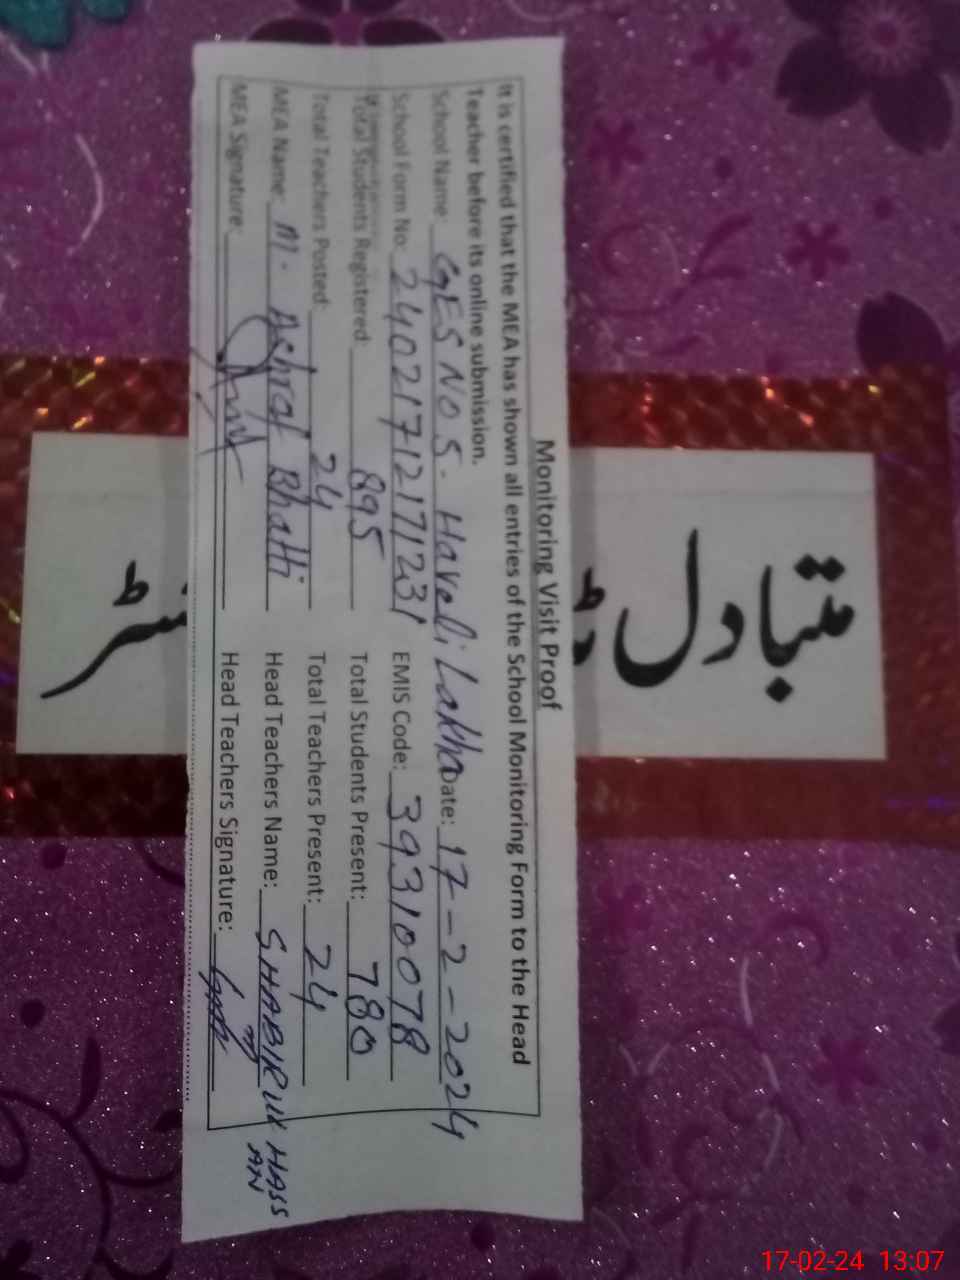 Monitoring Visit Proof
It is certified that the MEA has shown all entries of the School Monitoring Form to the Head
Teacher before its online submission.
School Name: GES NO 5. Haveli Lakha Date: 17-2-2024
School Form No: 24021712171231 EMIS Code: 39310078
Total Students Registered: 895 Total Students Present: 780
Total Teachers Posted: 24 Total Teachers Present: 24
MEA Name: M. Ashraf Bhatti Head Teachers Name: SHABIRUL HASSAN
MEA Signature: Head Teachers Signature:
متبادل
17-02-24 13:07